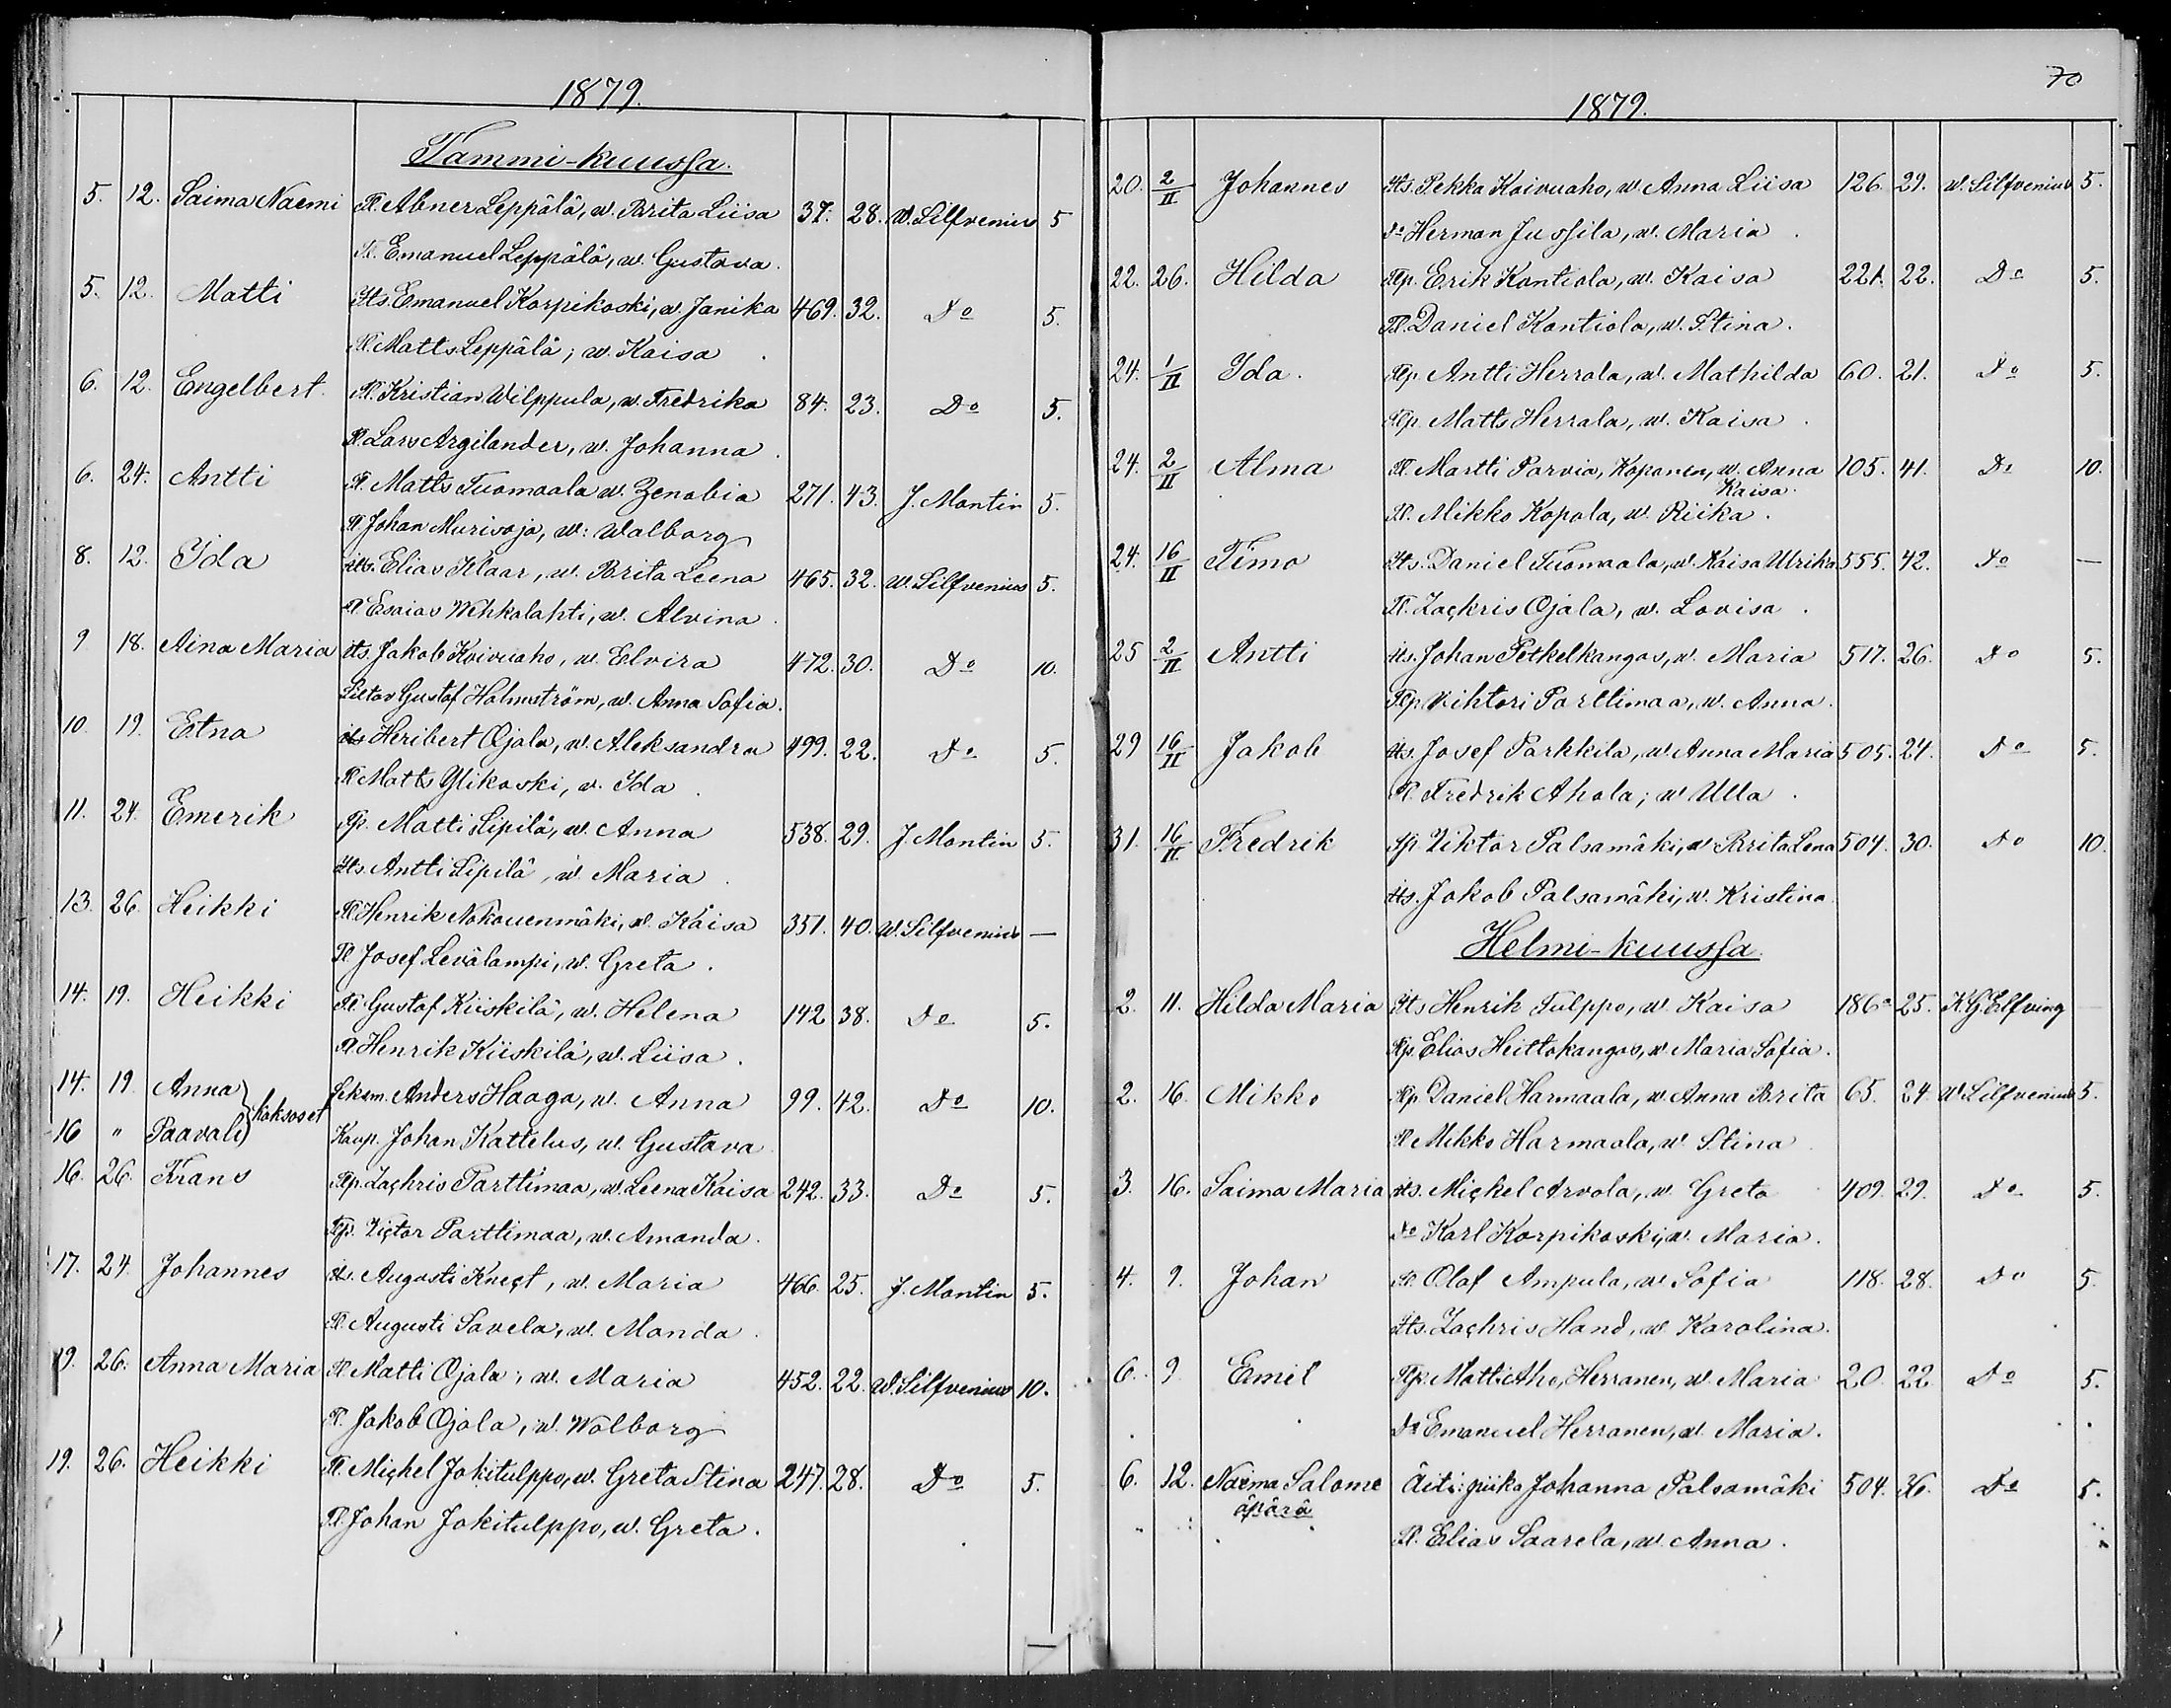 1879.
Tammi-kuussa.
5. 12. Saima Naemi Tl. Abner Leppälä, w. Brita Liisa 37. 28. W. Silfvenius 5
Tl. Emanuel Leppälä, w. Gustava.
5. 12. Matti Its. Emanuel Korpikoski, w. Janika 469. 32. Do 5.
Tl. Matts Leppälä; w. Kaisa.
6. 12. Engelbert. Tl. Kristian Wilppula, w. Fredrika 84. 23. Do 5.
Tl. Lars Argilander, w. Johanna.
6. 24. Antti Tl. Matts Tuomaala w. Zenobia 271. 43. J. Montin 5.
Tl. Johan Murisoja, w. Walborg
8. 12. Ida Its. Elias Klaar, w. Brita Leena 465. 32. W. Silfvenius 5.
Tl. Esaias Wehkalahti, w. Alvina.
9 18. Aina Maria Its. Jakob Koivuaho, w. Elvira 472. 30. Do 10.
Gustaf Holmström, w. Anna Sofia.
10. 19. Etna Its. Heribert Ojala, w. Aleksandra 499. 22. Do 5.
Tl. Matts Ylikoski, w. Ida.
11. 24. Emerik Tp. Matti Lipilä, w. Anna 538. 29. J. Montin 5.
Its. Antti Lipilä, w. Maria.
13. 26. Heikki Tl. Henrik Nokouenmäki, w. Kaisa 351. 40. W. Silfvenius —
Tl. Josef Levälampi, w. Greta.
14. 19. Heikki Tl. Gustaf Kiiskilä, w. Helena 142 38. Do 5.
Tl. Henrik Kiiskilä, w. Liisa.
14. 19. Anna } kaksoset Anders Haaga, w. Anna 99. 42. Do 10.
16 " Paavali } Kaup. Johan Kattelus, w. Gustava
16. 26. Frans Tlp. Zachris Parttimaa, w. Leena Kaisa 242. 33. Do 5.
Tlp. Victor Parttimaa, w. Amanda.
17. 24. Johannes Its. Augusti Knect, w. Maria 466. 25. J. Montin 5.
Tl. Augusti Savela, w. Manda.
19. 26. Anna Maria Tl. Matti Ojala, w. Maria 452. 22. W. Silfvenius 10.
Tl. Jakob Ojala, w. Wolborg
19. 26. Heikki Tl. Michel Jokitulppo, w. Greta Stina 247. 28. Do 5.
Tl. Johan Jokitulppo, w. Greta.
70
1879.
20. 2/II Johannes Its. Pekka Koivuaho, w. Anna Liisa 126. 29. W. Silfvenius 5.
Do Herman Jussila, w. Maria.
22. 26. Hilda Tlp. Erik Kontiola, w. Kaisa 221. 22. Do 5.
Tl. Daniel Kontiola, w. Stina.
24. 1/II Ida. Tlp. Antti Herrala, w. Mathilda 60. 21. Do 5.
Tlp. Matts Herrala, w. Kaisa.
24. 2/II Alma Tl. Martti Parvia, Koponen, w. Anna 105. 41. Do 10.
Kaisa.
Tl. Mikko Kopola, w. Riika.
24. 16/II Timo Its. Daniel Tuomaala, w. Kaisa Ulrika 555. 42. Do —
Tl. Zachris Ojala, w. Lovisa.
25 2/II Antti Its. Johan Petkelkangas, w. Maria 517. 26. Do 5.
Tlp. Vihtori Parttimaa, w. Anna.
29 16/II Jakob Its. Josef Parkkila, w. Anna Maria 505. 24. Do 5.
Tl. Fredrik Ahola; w Ulla.
31. 16/II Fredrik Tp. Viktor Palsamäki, w. Brita Lena 504. 30. Do 10.
Its. Jakob Palsamäki, w. Kristina
Helmi-kuussa.
2. 11. Hilda Maria Its Henrik Tulppo, w. Kaisa 186a 25. K. G. Elfving —
Tlp. Elias Heittokangas, w. Maria Sofia.
2. 16. Mikko Tlp. Daniel Harmaala, w. Anna Brita 65. 24. W. Silfvenius 5.
Tl. Mikko Harmaala, w. Stina
3. 16. Saima Maria Its. Michel Arvola, w. Greta 409. 29. Do 5.
Do Karl Korpikoski, w. Maria.
4. 9. Johan Tl. Olof Ampula, w. Sofia 118. 28. Do 5.
Its. Zachris Hand, w. Karolina.
6. 9. Emil Tlp. Matti Aho, Herranen, w. Maria 20. 22. Do 5.
Do Emanuel Herranen, w. Maria.
6. 12. Naema Salome Äiti: piika Johanna Palsamäki 504. 36. Do 5.
äpärä
Tl. Elias Saarela, w. Anna.